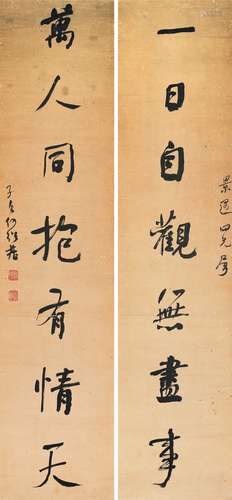 景四兄屬
一日自觀無盡事
萬人同抱有情天
子貞何紹基